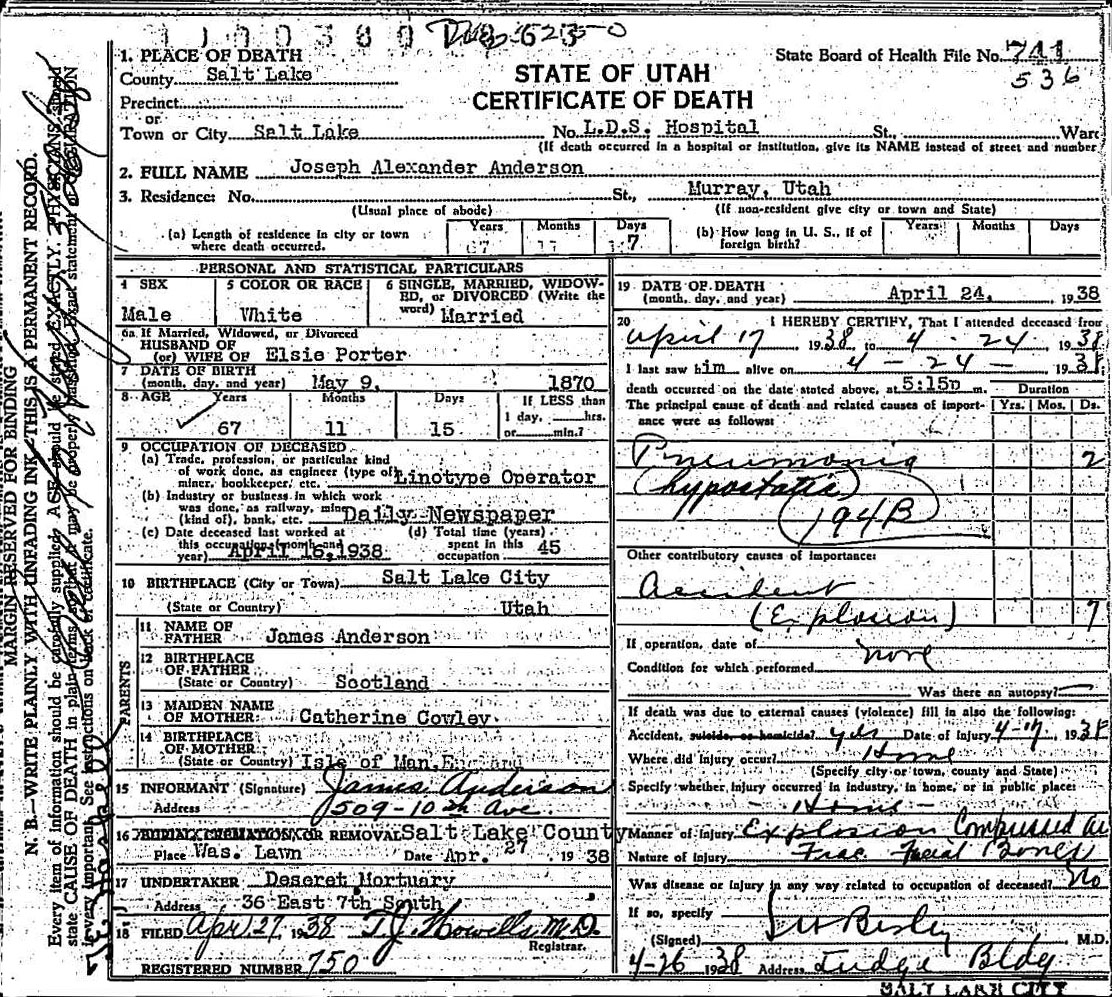 State Board of Health File No. 741
536
STATE OF UTAH
CERTIFICATE OF DEATH
1. PLACE OF DEATH
County Salt Lake
Precinct
or
Town or City Salt Lake No. L.D.S. Hospital St., Ward
(If death occurred in a hospital or institution, give its NAME instead of street and number
2. FULL NAME Joseph Alexander Anderson
3. Residence: No. St., Murray, Utah
(Usual place of abode) (If non-resident give city or town and State)
(a) Length of residence in city or town where death occurred. Years 67 Months 11 Days 17
(b) How long in U. S., if of foreign birth? Years Months Days
PERSONAL AND STATISTICAL PARTICULARS
4 SEX 5 COLOR OR RACE 6 SINGLE, MARRIED, WIDOWED, or DIVORCED (Write the word)
Male White Married
6a If Married, Widowed, or Divorced
HUSBAND OF
(or) WIFE OF Elsie Porter
7 DATE OF BIRTH
(month, day, and year) May 9, 1870
8 AGE Years Months Days If LESS than
67 11 15 1 day, hrs.
or min.?
9 OCCUPATION OF DECEASED
(a) Trade, profession, or particular kind
of work done, as engineer (type of
miner, bookkeeper, etc. Linotype Operator
(b) Industry or business in which work
was done, as railway, mine
(kind of), bank, etc. Daily Newspaper
(c) Date deceased last worked at
this occupation (month and
year) April 16, 1938
(d) Total time (years)
spent in this
occupation 45
10 BIRTHPLACE (City or Town) Salt Lake City
(State or Country) Utah
PARENTS
11 NAME OF
FATHER James Anderson
12 BIRTHPLACE
OF FATHER
(State or Country) Scotland
13 MAIDEN NAME
OF MOTHER Catherine Cowley
14 BIRTHPLACE
OF MOTHER
(State or Country) Isle of Man, England
15 INFORMANT (Signature) James Anderson
Address 509-10th Ave.
16 BURIAL CREMATION OR REMOVAL Salt Lake County
Place Was. Lawn Date Apr. 27 1938
17 UNDERTAKER Deseret Mortuary
Address 36 East 7th South
18 FILED Apr. 27 1938 T. J. Howells, M.D.
Registrar.
REGISTERED NUMBER 750
19 DATE OF DEATH
(month, day, and year) April 24, 1938
20 I HEREBY CERTIFY, That I attended deceased from
April 17 1938 to 4-24 1938
I last saw him alive on 4-24 1938
death occurred on the date stated above, at 5:15p m. Duration
The principal cause of death and related causes of importance were as follows: Yrs. Mos. Ds.
Pneumonia 2
(hypostatic)
194B
Other contributory causes of importance:
Accident
(Explosion) 7
If operation, date of none
Condition for which performed
Was there an autopsy?
If death was due to external causes (violence) fill in also the following:
Accident, suicide, or homicide? yes Date of injury 4-17, 1938
Where did injury occur? Home
(Specify city or town, county and State)
Specify whether injury occurred in industry, in home, or in public place:
Home
Manner of Injury Explosion Compressed air
Nature of Injury Frac. Facial Bones
Was disease or injury in any way related to occupation of deceased? No
If so, specify
(Signed) M.D.
4-26 1938 Address Judge Bldg
SALT LAKE CITY
MARGIN RESERVED FOR BINDING
N. B.—WRITE PLAINLY WITH UNFADING INK—THIS IS A PERMANENT RECORD.
Every item of information should be carefully supplied. AGE should be stated EXACTLY. PHYSICIANS should
state CAUSE OF DEATH in plain terms, so that it may be properly classified. Exact statement of OCCUPATION
is very important. See instructions on back of certificate.